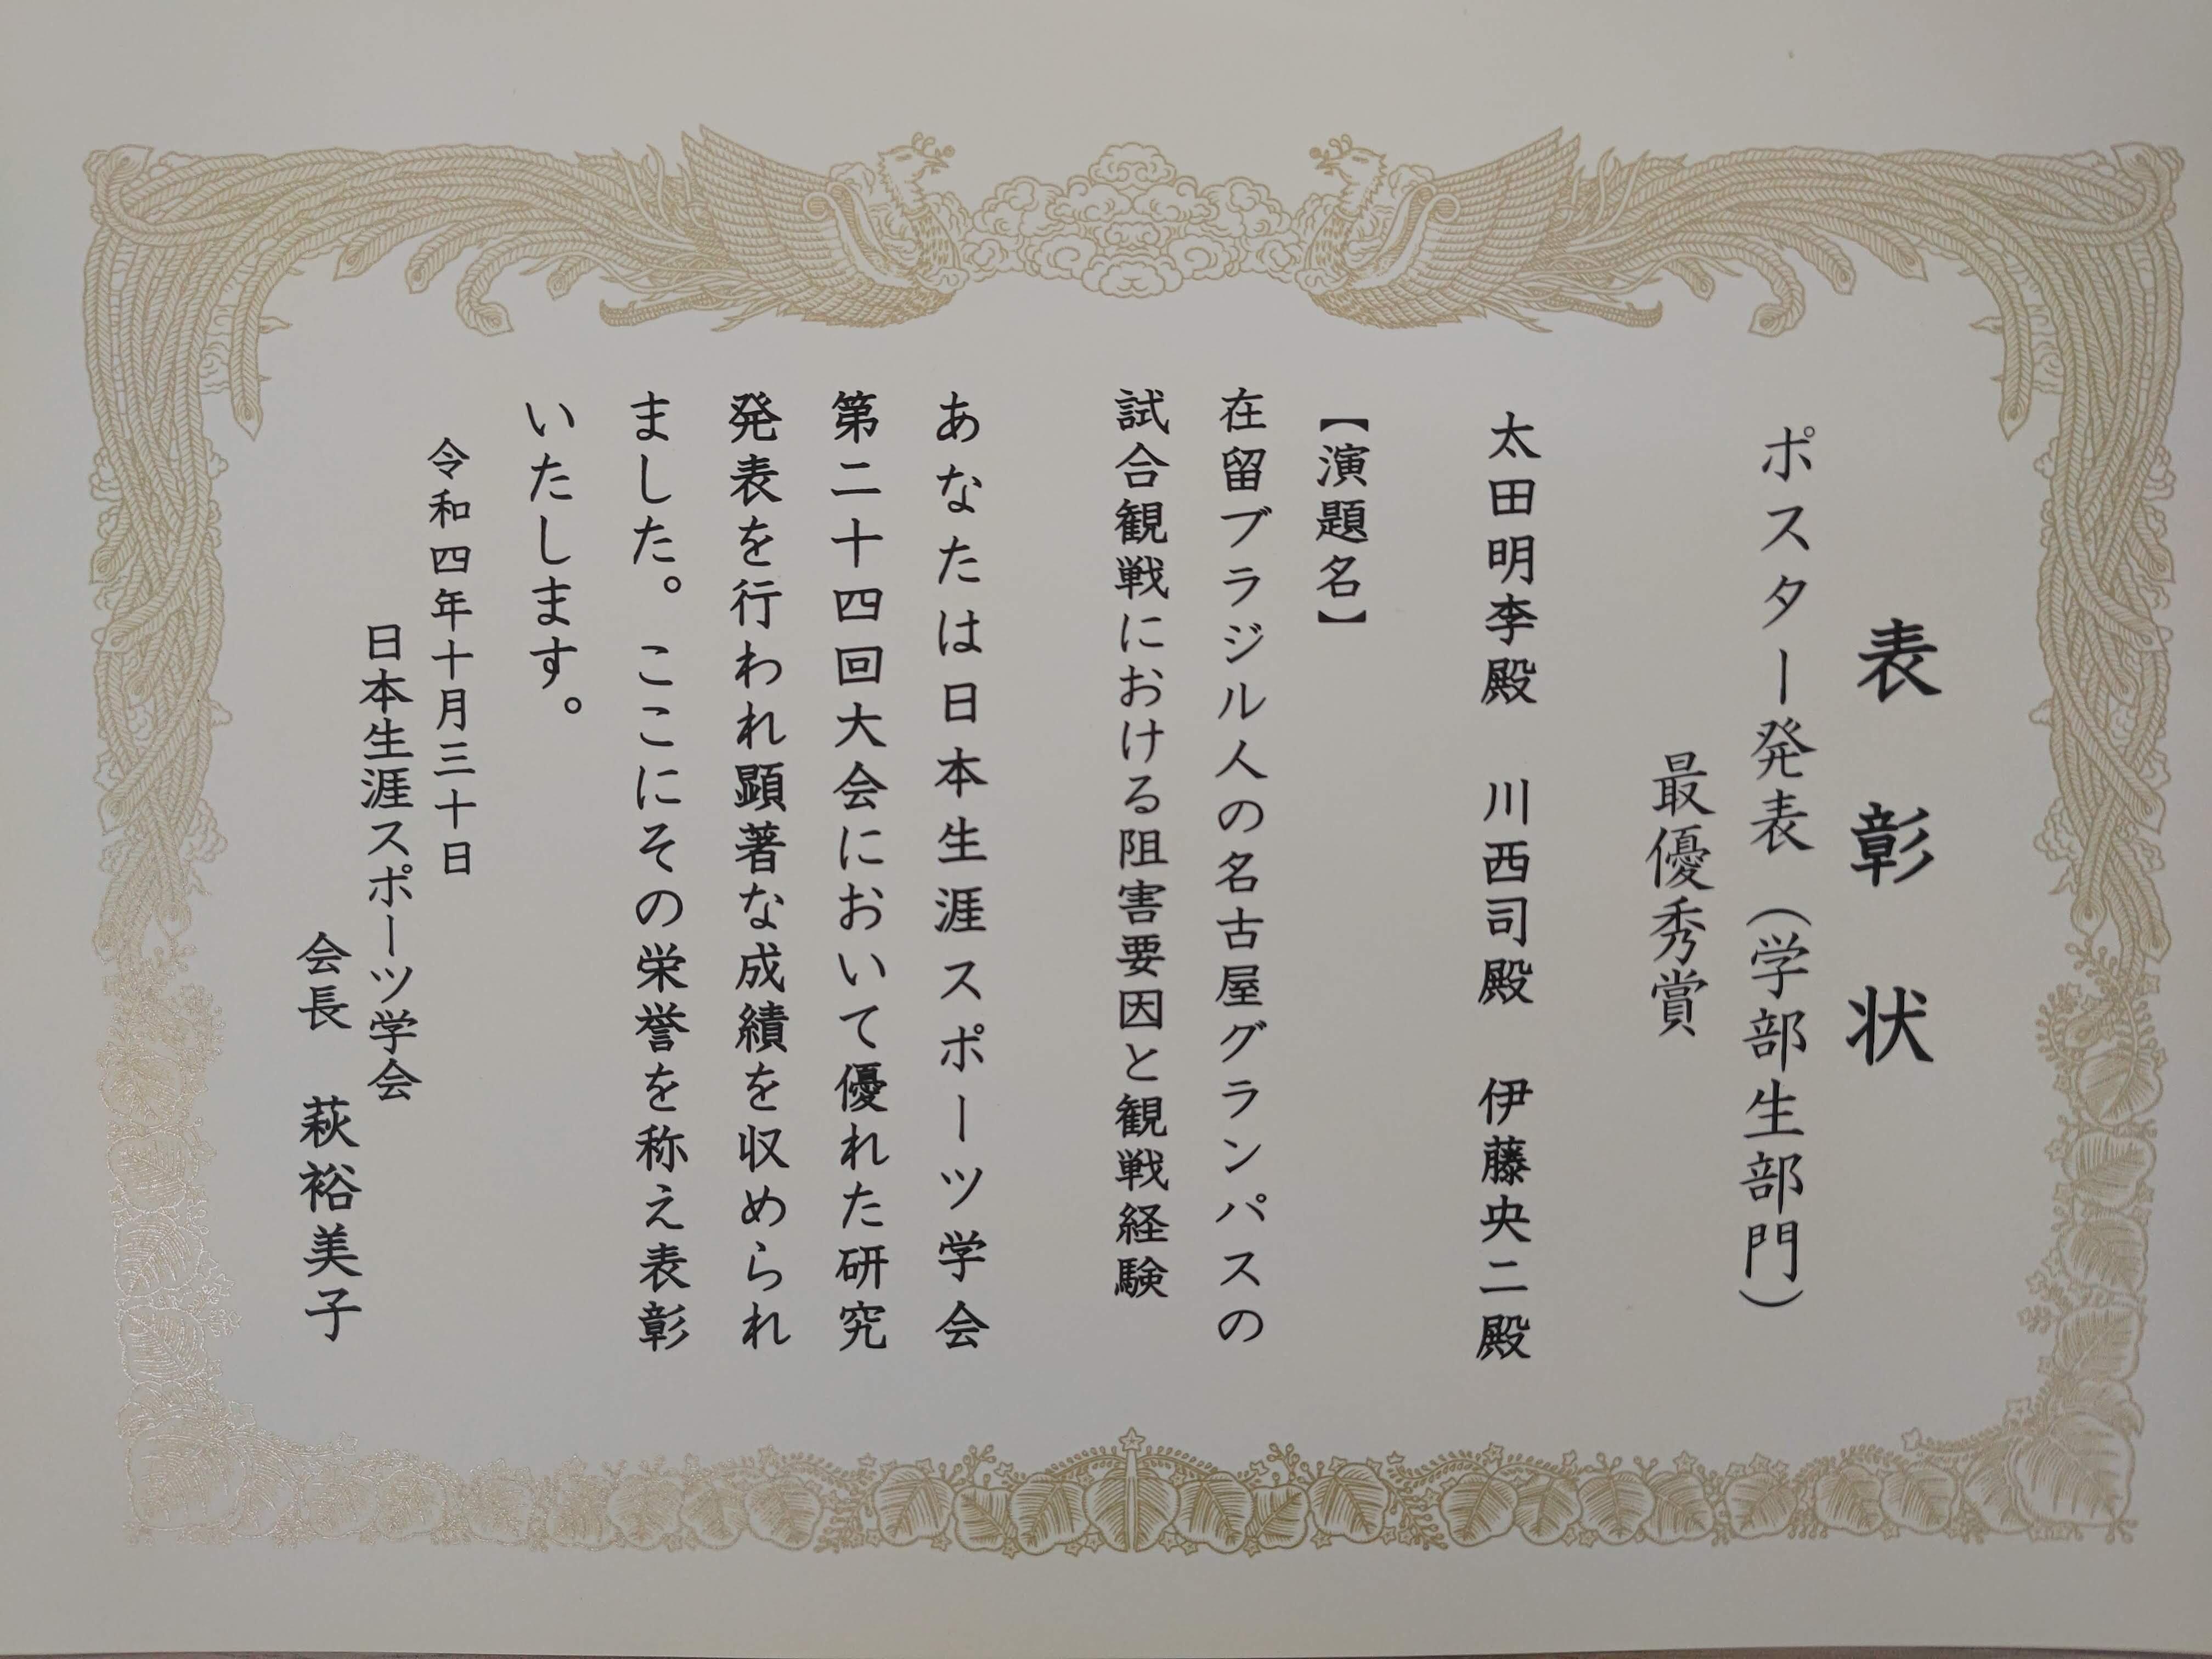 表彰状
ポスター発表（学部生部門）
最優秀賞
太田明李殿　川西司殿　伊藤央二殿
【演題名】
在留ブラジル人の名古屋グランパスの
試合観戦における阻害要因と観戦経験
あなたは日本生涯スポーツ学会
第二十四回大会において優れた研究
発表を行われ顕著な成績を収められ
ました。ここにその栄誉を称え表彰
いたします。
令和四年十月三十日
日本生涯スポーツ学会
会長　萩裕美子